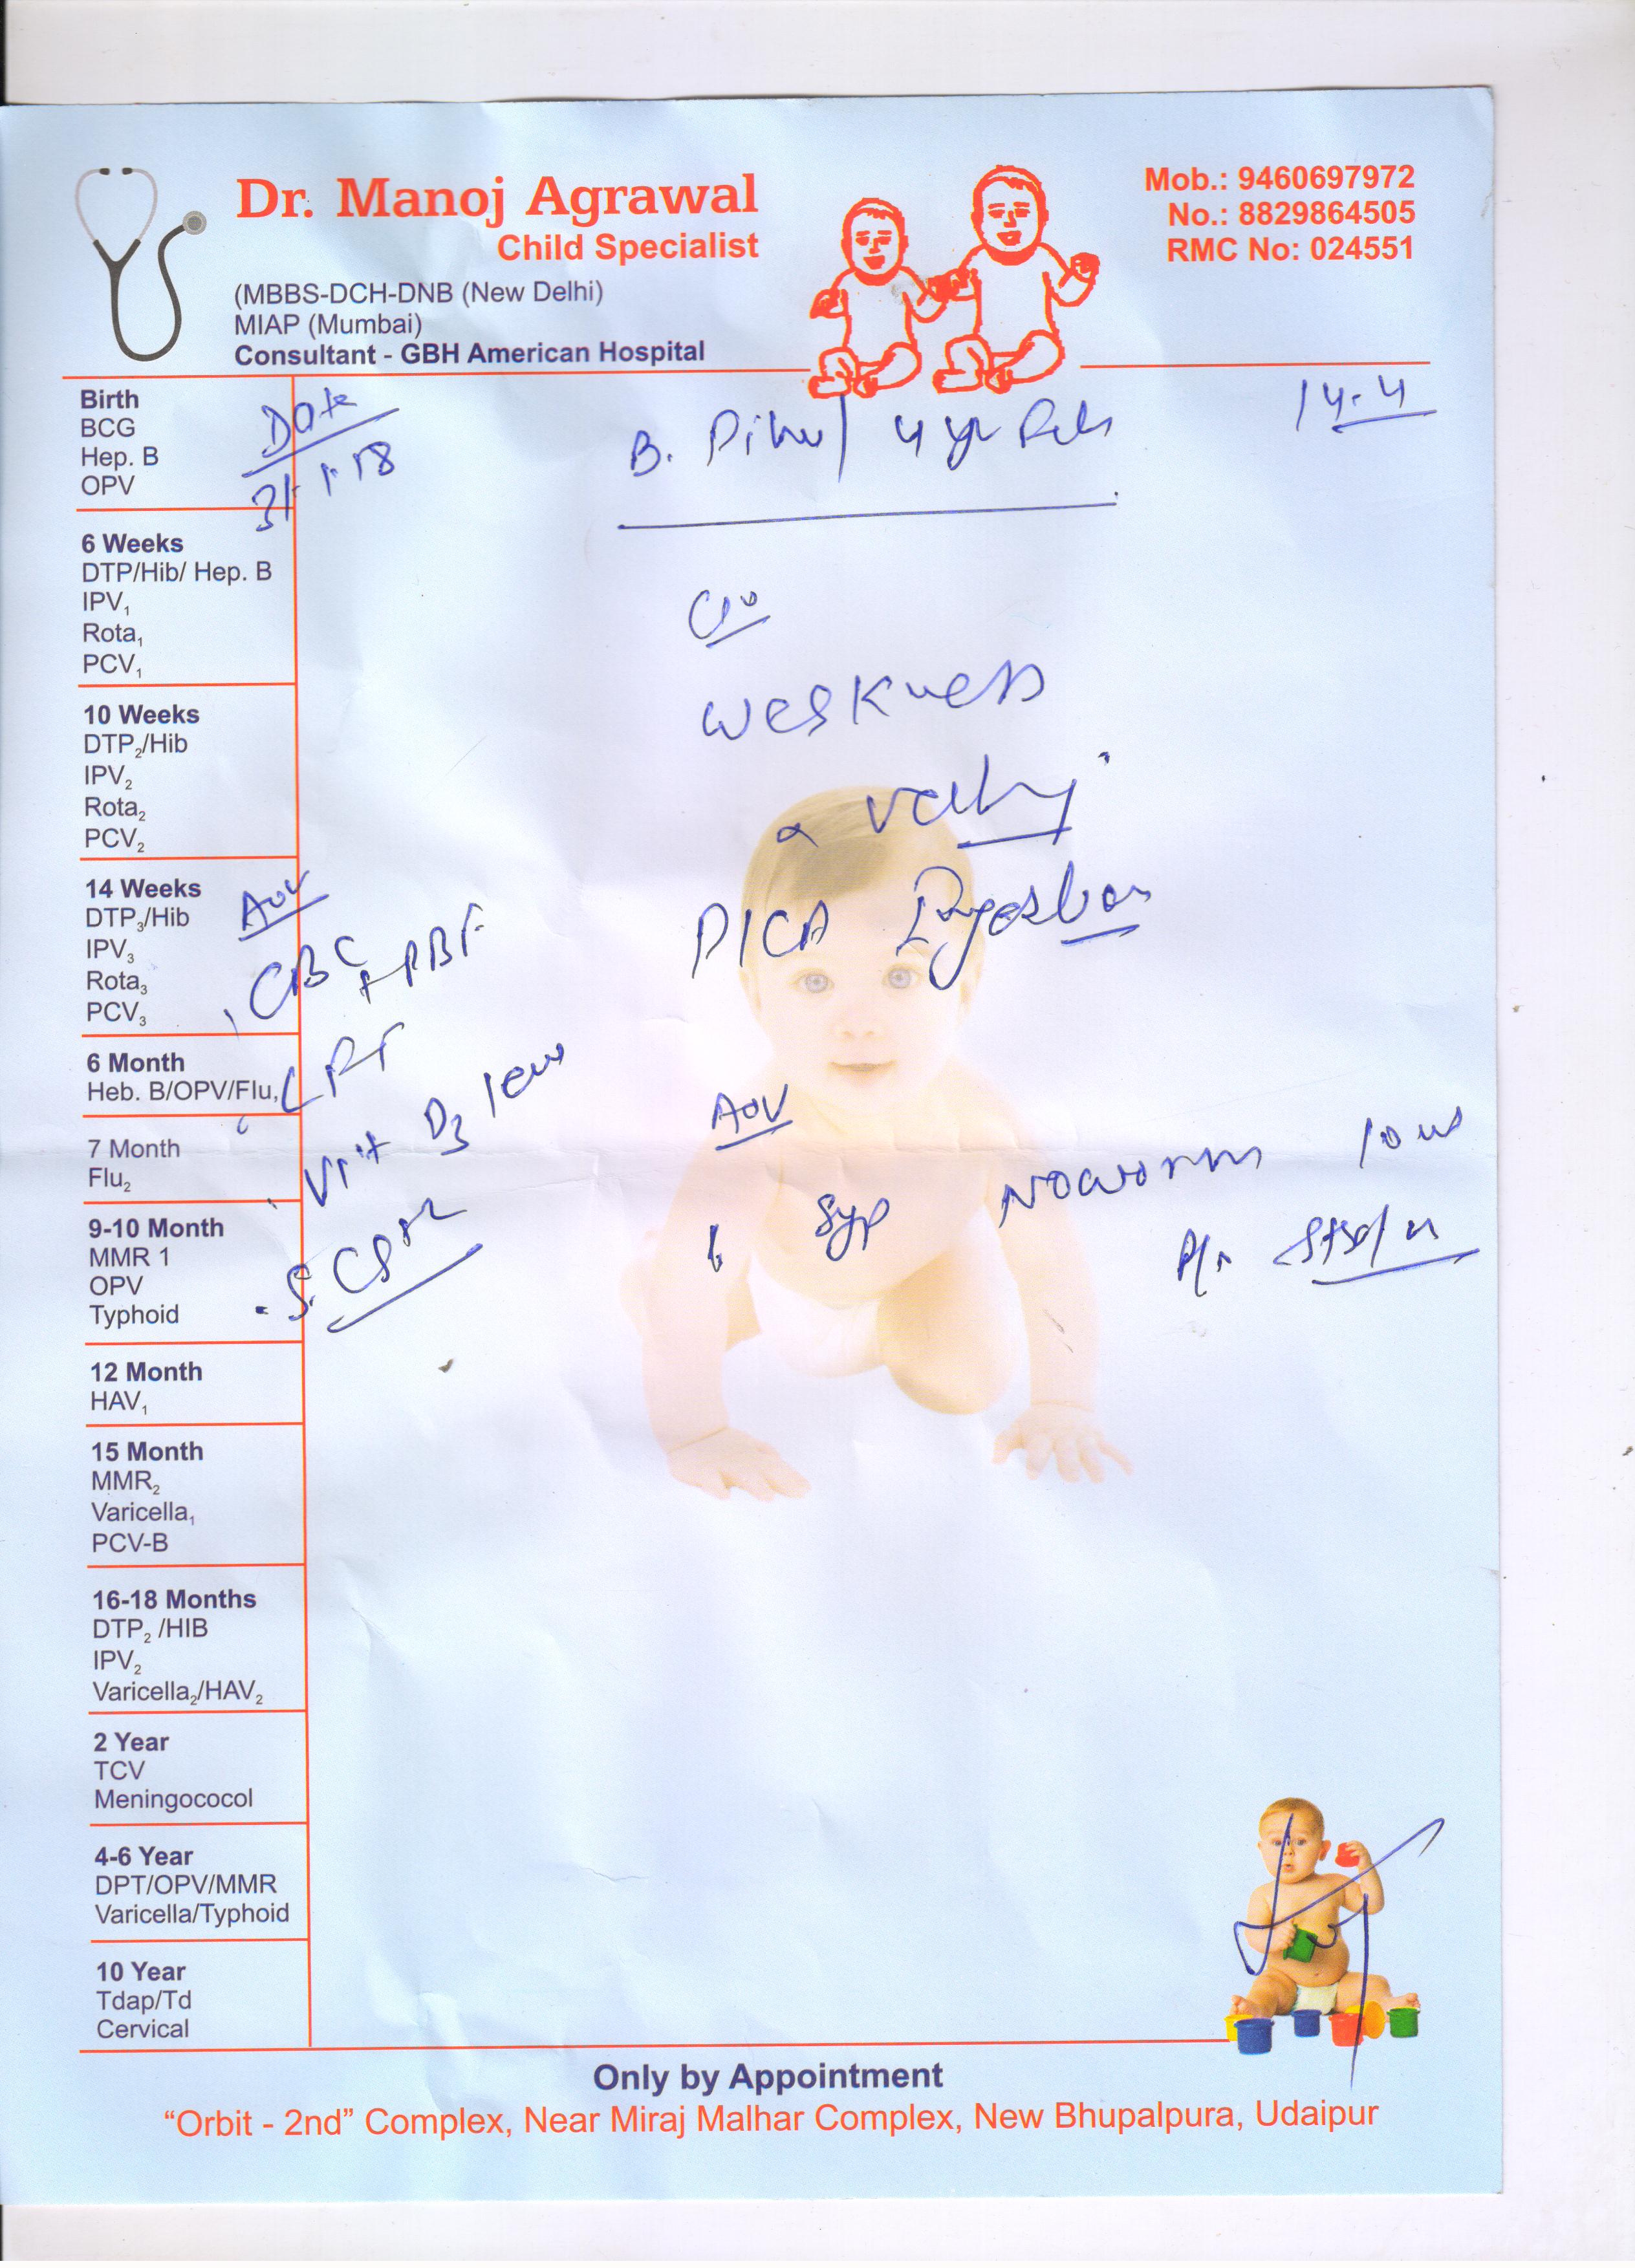 Dr. Manoj Agrawal
Child Specialist
(MBBS-DCH-DNB (New Delhi)
MIAP (Mumbai)
Consultant - GBH American Hospital
Mob.: 9460697972
No.: 8829864505
RMC No: 024551
Date
31.1.18
B. Pihu / 4 yr
14.4
Weakness
PICA Ingestion
Adv
Syp Noworm 10 ml
Adv
CBC + PBF
Vit D3 level
Birth
BCG
Hep. B
OPV
6 Weeks
DTP/Hib/ Hep. B
IPV₁
Rota₁
PCV₁
10 Weeks
DTP₂/Hib
IPV₂
Rota₂
PCV₂
14 Weeks
DTP₃/Hib
IPV₃
Rota₃
PCV₃
6 Month
Heb. B/OPV/Flu,
7 Month
Flu₂
9-10 Month
MMR 1
OPV
Typhoid
12 Month
HAV₁
15 Month
MMR₂
Varicella₁
PCV-B
16-18 Months
DTP₂ /HIB
IPV₂
Varicella₂/HAV₂
2 Year
TCV
Meningococol
4-6 Year
DPT/OPV/MMR
Varicella/Typhoid
10 Year
Tdap/Td
Cervical
Only by Appointment
“Orbit - 2nd” Complex, Near Miraj Malhar Complex, New Bhupalpura, Udaipur